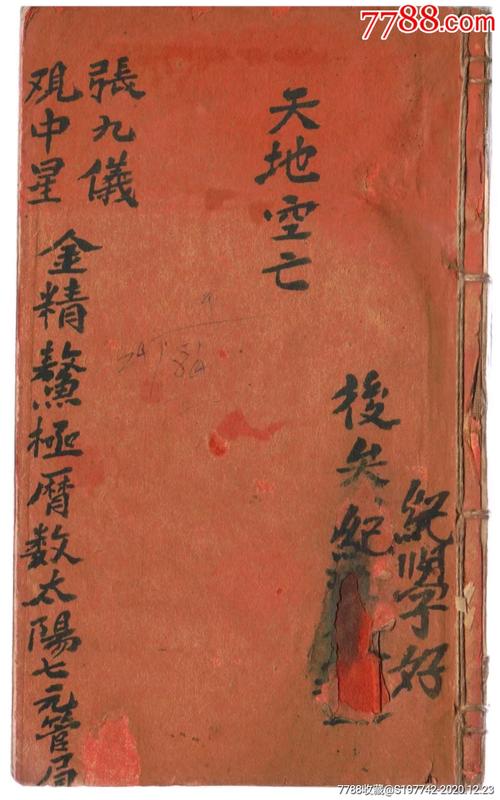 7788.com
張九儀
观中星
金精鰲極曆数太陽七元管局
天地空亡
後矣紀
紀順字好
7788收藏@S197742-2020.12.23